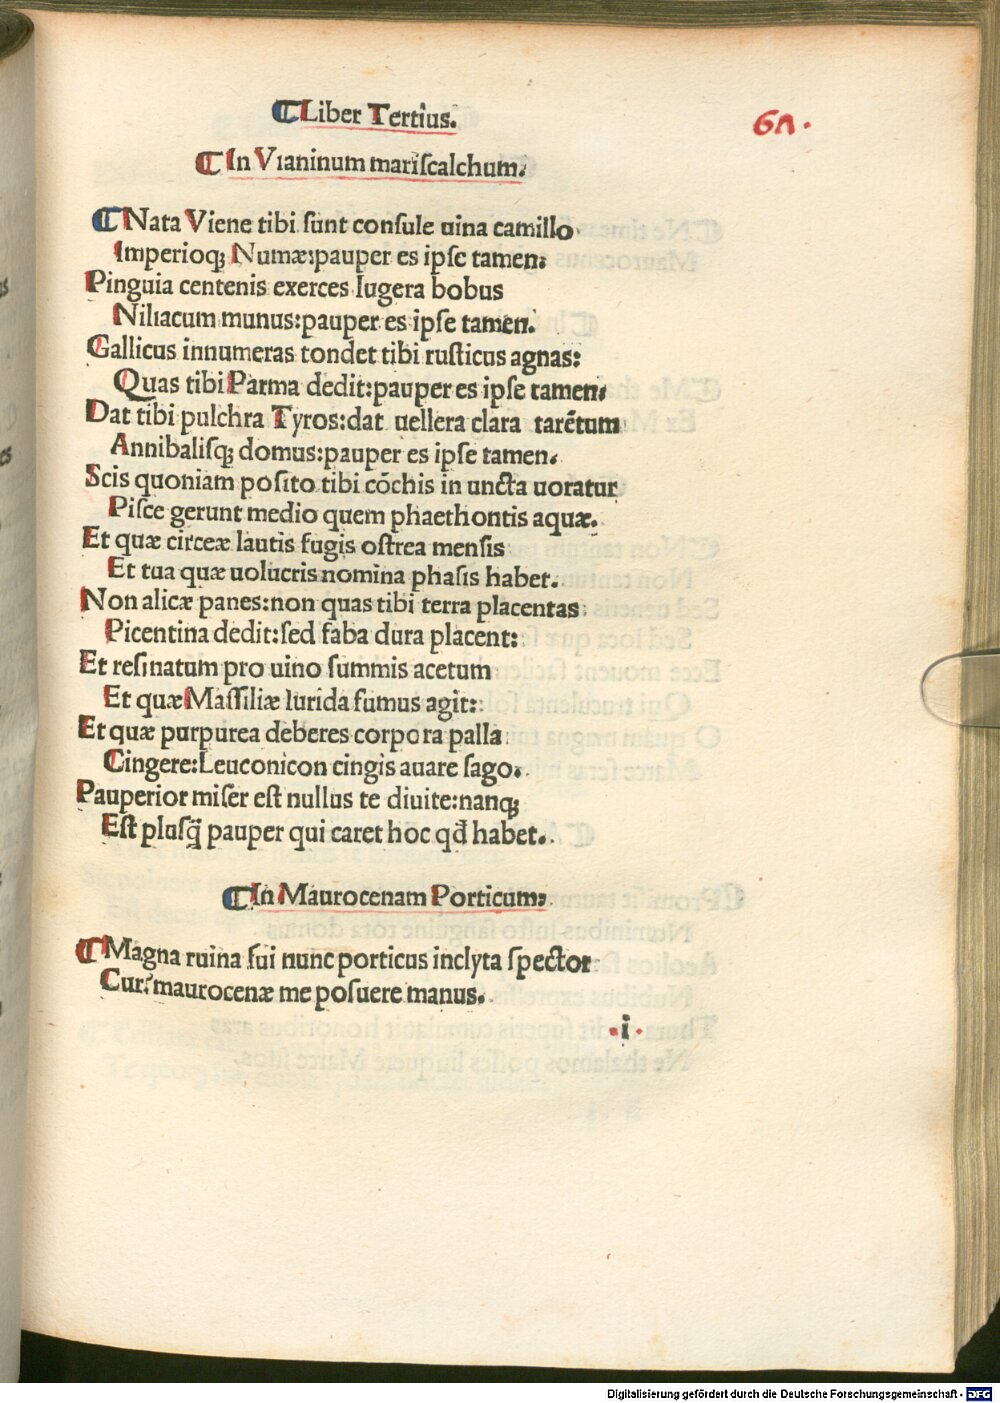 ¶Liber Tertius.
67.
¶In Vianinum mariſcalchum.
¶Nata Viene tibi ſunt conſule uina camillo
Imperioq; Numæ:pauper es ipſe tamen.
Pinguia centenis exerces Iugera bobus
Niliacum munus:pauper es ipſe tamen.
Gallicus innumeras tondet tibi ruſticus agnas:
Quas tibi Parma dedit:pauper es ipſe tamen.
Dat tibi pulchra Tyros:dat uellera clara tarẽtum
Annibaliſq; domus:pauper es ipſe tamen.
Scis quoniam poſito tibi cõchis in uncta uoratur
Piſce gerunt medio quem phaethontis aquæ.
Et quæ circeæ lautis fugis oſtrea menſis
Et tua quæ uolucris nomina phaſis habet.
Non alicæ panes:non quas tibi terra placentas
Picentina dedit:ſed faba dura placent:
Et reſinatum pro uino ſummis acetum
Et quæ Maſſiliæ lurida fumus agit:
Et quæ purpurea deberes corpora palla
Cingere:Leuconicon cingis auare ſago.
Pauperior miſer eſt nullus te diuite:nanq;
Eſt pluſq̃ pauper qui caret hoc qđ habet.
¶In Maurocenam Porticum.
¶Magna ruina fui nunc porticus inclyta ſpector
Cur?maurocenæ me poſuere manus.
·i·
Digitalisierung gefördert durch die Deutsche Forschungsgemeinschaft - DFG